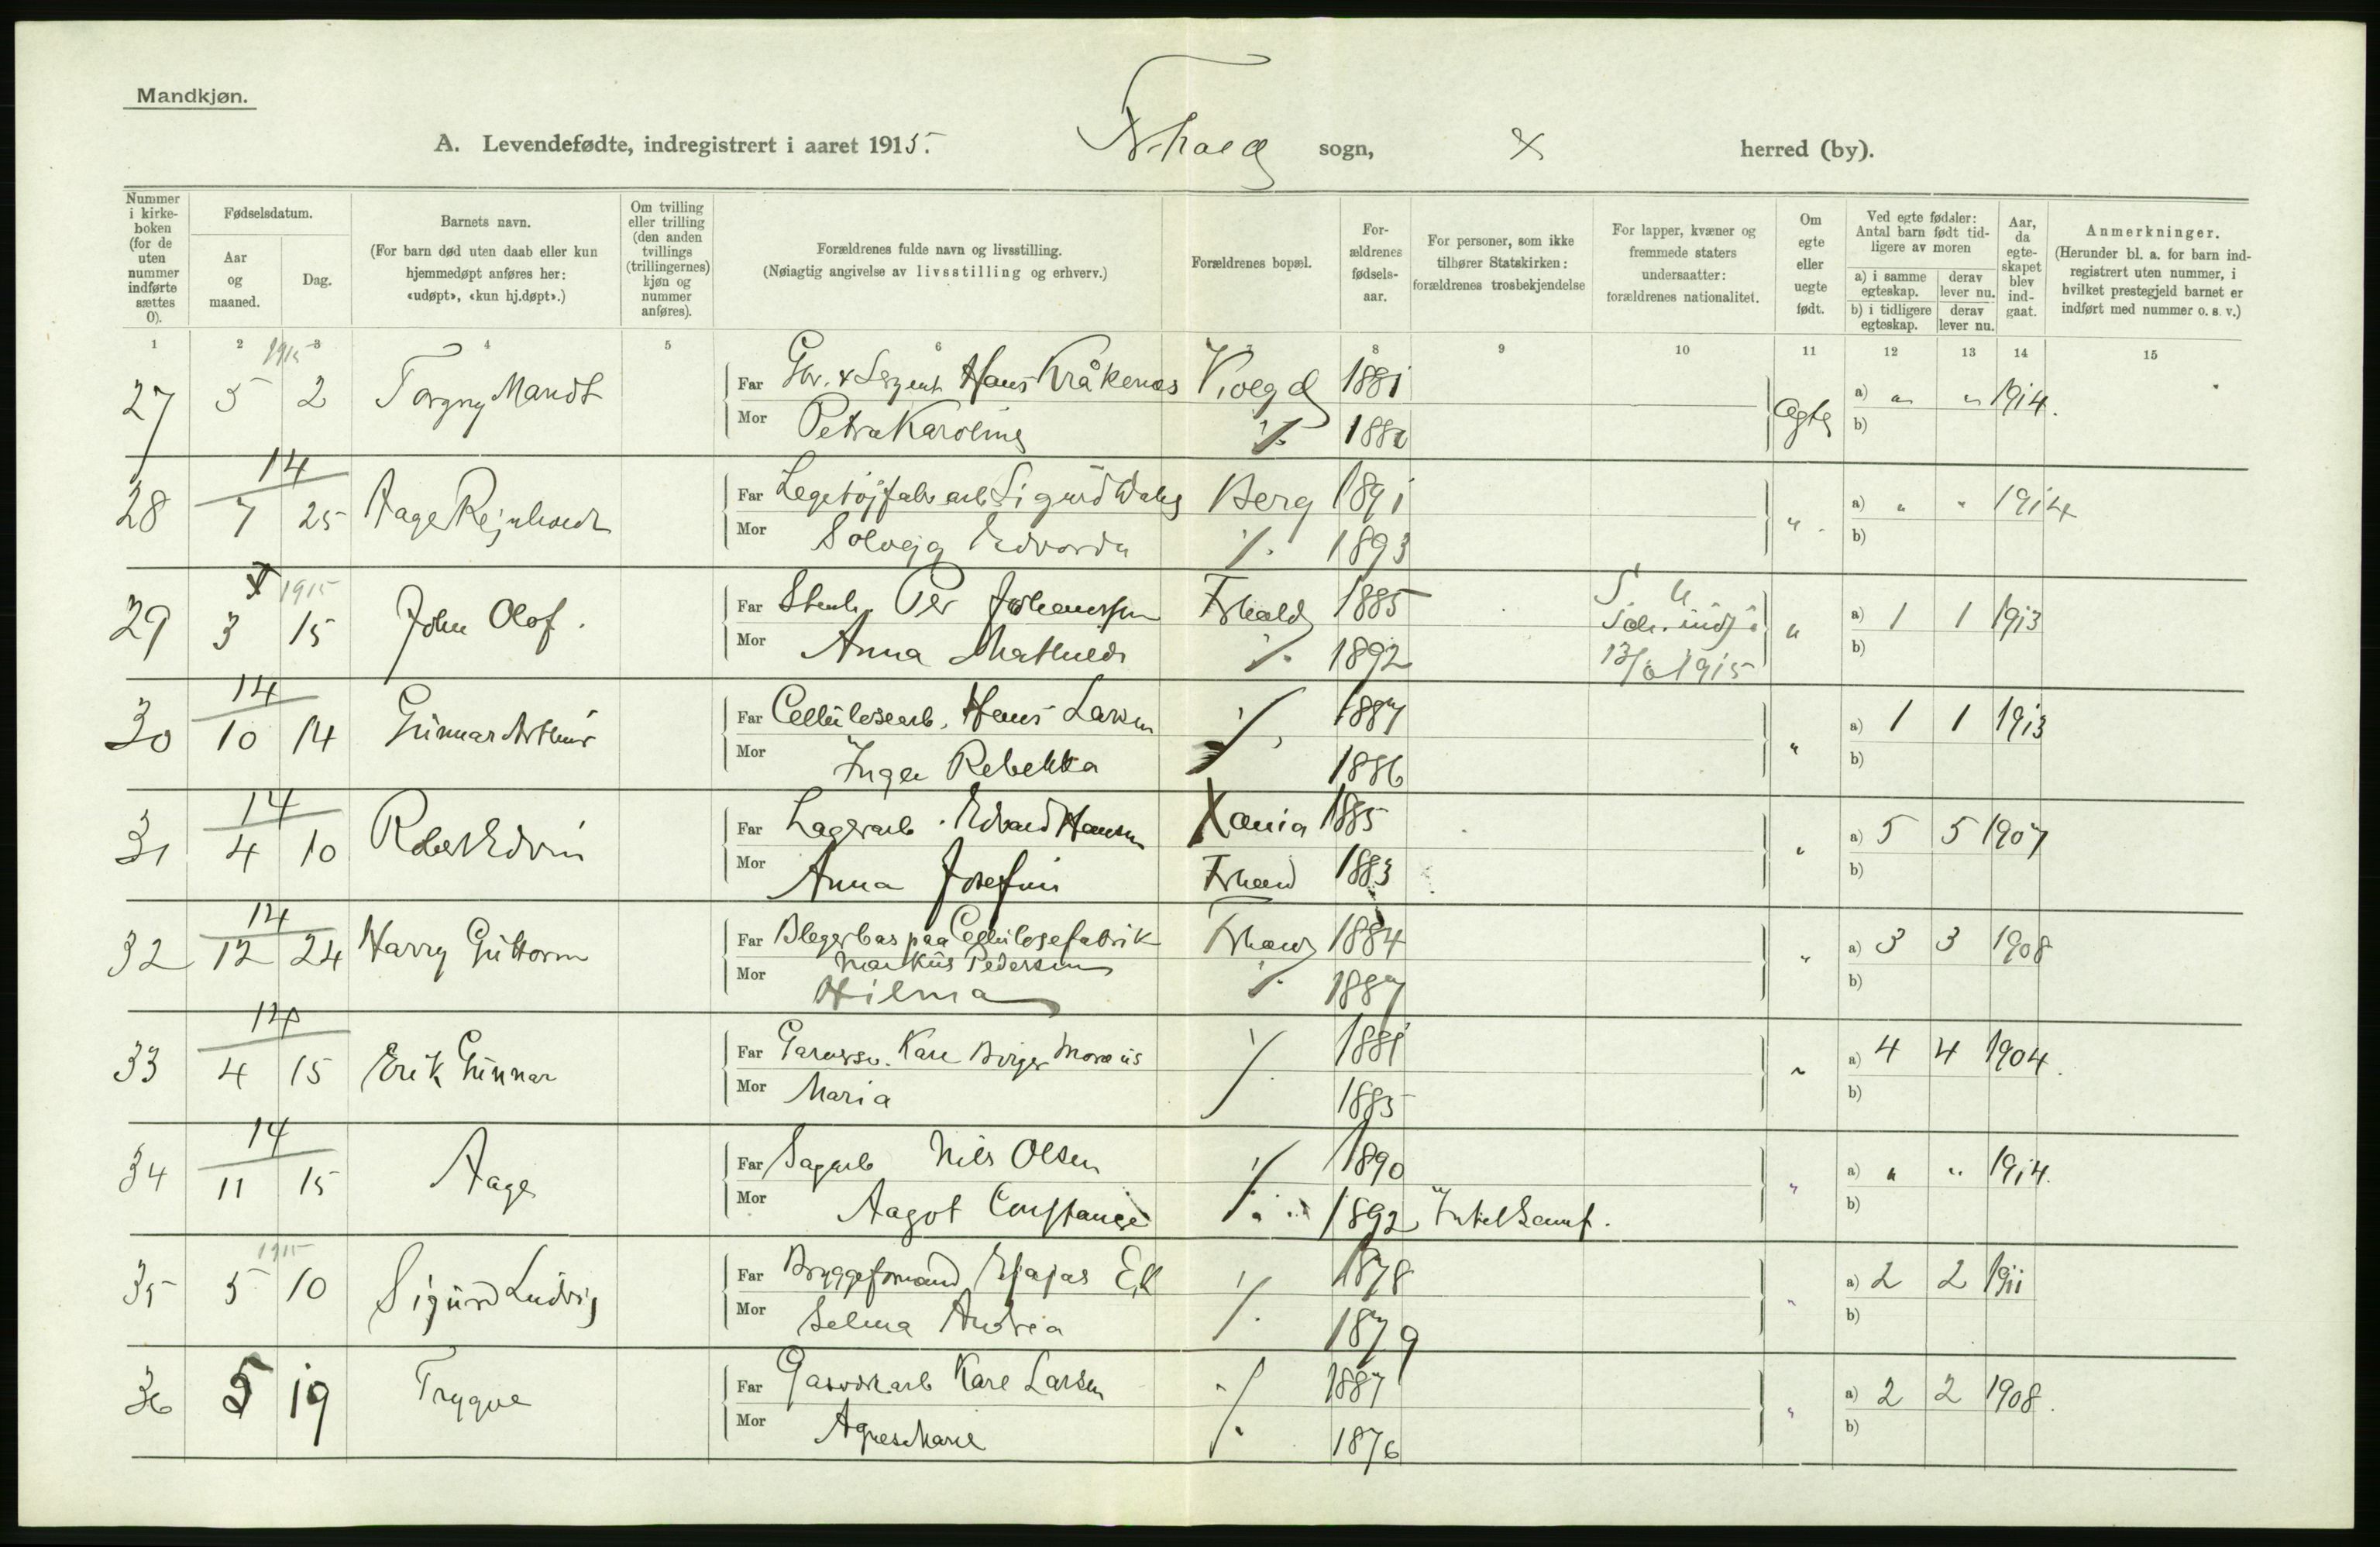 Mandkjøn.
A. Levendefødte, indregistrert i aaret 1915. sogn, herred (by).
Nummer i kirke-boken (for de uten nummer indførte sættes 0).
Fødselsdatum.
Aar og maaned.
Dag.
Barnets navn.
(For barn død uten daab eller kun hjemmedøpt anføres her: «udøpt», «kun hj.døpt».)
Om tvilling eller trilling (den anden tvillings (trillingernes) kjøn og nummer anføres).
Forældrenes fulde navn og livsstilling.
(Nøiagtig angivelse av livsstilling og erhverv.)
Forældrenes bopæl.
For-ældrenes fødsels-aar.
For personer, som ikke tilhører Statskirken: forældrenes trosbekjendelse
For lapper, kvæner og fremmede staters undersaatter: forældrenes nationalitet.
Om egte eller uegte født.
Ved egte fødsler: Antal barn født tid-ligere av moren
a) i samme egteskap. derav lever nu.
b) i tidligere egteskap. derav lever nu.
Aar, da egte-skapet blev ind-gaat.
Anmerkninger.
(Herunder bl. a. for barn ind-registrert uten nummer, i hvilket prestegjeld barnet er indført med nummer o. s. v.)
1 2 3 4 5 6 7 8 9 10 11 12 13 14 15
1915
27 5 2 Torgny Mandt Far Hans Kråkenes 1881 Egte a) " " 1914.
Mor Petra Karoline b)
14
28 7 25 Aage Far Sigurd Berg 1891 " a) " " 1914
Mor Solveig Edvarda 1893 b)
1915
29 3 15 John Olof. Far Per Johansson Fr.hald 1885 " a) 1 1 1913
Mor Anna Mathilde 1892 b)
1915
14
30 10 14 Gunnar Arthur Far Cellulosearb. Hans Larsen 1887 " a) 1 1 1913
Mor Inga Rebekka 1886 b)
14
31 4 10 Robert Edvin Far Lagerarb. Edvard Hansen Xania 1885 " a) 5 5 1907
Mor Anna Josefine 1883 b)
14
32 12 24 Harry Guttorm Far paa Cellulosefabrik 1884 " a) 3 3 1908
Markus Pedersen
Mor Hilma 1887 b)
14
33 4 15 Erik Gunnar Far Birger 1881 " a) 4 4 1904.
Mor Maria 1885 b)
14
34 11 15 Aage Far Sagarb Nils Olsen 1890 " a) " " 1914.
Mor Aagot Constance 1892 b)
1915
35 5 10 Sigurd Ludvig Far Bryggeformand Esajas Ek 1878 " a) 2 2 1911
Mor Selma Andrea 1879 b)
36 5 19 Trygve Far Karl Larsen 1887 " a) 2 2 1908.
Mor Agnes Marie 1876 b)